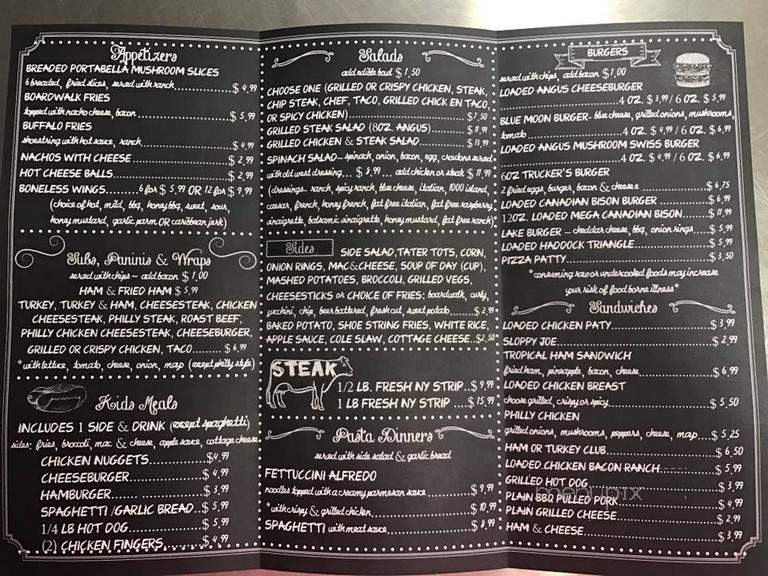 Appetizers
BREADED PORTABELLA MUSHROOM SLICES
6 breaded, fried slices, served with ranch.....$4.99
BOARDWALK FRIES
topped with nacho cheese, bacon.....$5.99
BUFFALO FRIES
shoestring with hot sauce, ranch.....$4.99
NACHOS WITH CHEESE.....$2.99
HOT CHEESE BALLS.....$2.99
BONELESS WINGS.....6 for $5.99 OR 12 for $9.99
(choice of hot, mild, bbq, honey bbq, sweet, sour,
honey mustard, garlic parm OR caribbean jerk)
Subs, Paninis & Wraps
served with chips ~ add bacon $1.00
HAM & FRIED HAM $5.99
TURKEY, TURKEY & HAM, CHEESESTEAK, CHICKEN
CHEESESTEAK, PHILLY STEAK, ROAST BEEF,
PHILLY CHICKEN CHEESESTEAK, CHEESEBURGER,
GRILLED OR CRISPY CHICKEN, TACO.....$6.99
*with lettuce, tomato, cheese, onion, mayo (except philly style)
Kids Meals
INCLUDES 1 SIDE & DRINK (except spaghetti)
sides: fries, broccoli, mac & cheese, apple sauce, cottage cheese
CHICKEN NUGGETS.....$4.99
CHEESEBURGER.....$4.99
HAMBURGER.....$3.99
SPAGHETTI/GARLIC BREAD..$5.99
1/4 LB HOT DOG.....$5.99
(2) CHICKEN FINGERS.....$4.99
Salads
add edible bowl $1.50
CHOOSE ONE (GRILLED OR CRISPY CHICKEN, STEAK,
CHIP STEAK, CHEF, TACO, GRILLED CHICKEN TACO,
OR SPICY CHICKEN).....$7.50
GRILLED STEAK SALAD (8OZ. ANGUS).....$11.99
GRILLED CHICKEN & STEAK SALAD.....$13.99
SPINACH SALAD—spinach, onion, bacon, egg, croutons served
with old west dressing...$8.99... add chicken or steak $11.99
(dressings- ranch, spicy ranch, blue cheese, italian, 1000 island,
caesar, french, honey french, fat free italian, fat free raspberry
vinaigrette, balsamic vinaigrette, honey mustard, fat free ranch)
Sides
SIDE SALAD, TATER TOTS, CORN,
ONION RINGS, MAC&CHEESE, SOUP OF DAY (CUP),
MASHED POTATOES, BROCCOLI, GRILLED VEGS,
CHEESESTICKS or CHOICE OF FRIES: boardwalk, curly,
zucchini, chip, beer battered, fresh cut, sweet potato.....$2.99
BAKED POTATO, SHOE STRING FRIES, WHITE RICE,
APPLE SAUCE, COLE SLAW, COTTAGE CHEESE..$2.50
STEAK
1/2 LB. FRESH NY STRIP..$9.99
1 LB FRESH NY STRIP....$15.99
Pasta Dinners
served with side salad & garlic bread
FETTUCCINI ALFREDO
noodles topped with a creamy parmesan sauce.....$9.99
*with crispy & grilled chicken.....$10.99
SPAGHETTI with meat sauce.....$8.99
BURGERS
served with chips, add bacon $1.00
LOADED ANGUS CHEESEBURGER
.....4 OZ. $3.99/6 OZ. $5.99
BLUE MOON BURGER- blue cheese, grilled onions, mushrooms,
tomato.....4 OZ. $4.99/6 OZ. $6.99
LOADED ANGUS MUSHROOM SWISS BURGER
.....4 OZ. $4.99/6 OZ. $6.99
6OZ TRUCKER'S BURGER
2 fried eggs, burger, bacon & cheese.....$6.75
LOADED CANADIAN BISON BURGER.....$6.99
12OZ. LOADED MEGA CANADIAN BISON.....$11.99
LAKE BURGER — cheddar cheese, bbq, onion rings.....$5.99
LOADED HADDOCK TRIANGLE.....$5.99
PIZZA PATTY.....$3.50
*consuming raw or undercooked foods may increase
your risk of food borne illness*
Sandwiches
LOADED CHICKEN PATTY.....$3.99
SLOPPY JOE.....$2.99
TROPICAL HAM SANDWICH
fried ham, pineapple, bacon, cheese.....$6.99
LOADED CHICKEN BREAST
choose grilled, crispy or spicy.....$5.50
PHILLY CHICKEN
grilled onions, mushrooms, peppers, cheese, mayo.....$5.25
HAM OR TURKEY CLUB.....$6.50
LOADED CHICKEN BACON RANCH.....$5.99
GRILLED HOT DOG.....$3.99
PLAIN BBQ PULLED PORK.....$4.99
PLAIN GRILLED CHEESE.....$2.99
HAM & CHEESE.....$3.99
menupix